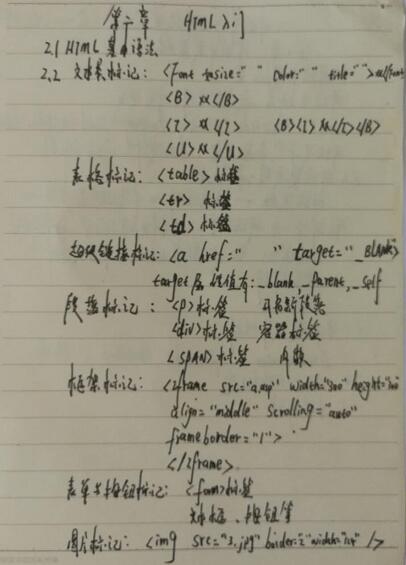 第二章 HTML入门
2.1 HTML基本语法
2.2 文本标记: <Font size=" " color=" " title=" ">xx</font
<B> xx </B>
<I> xx </I> <B><I>xx</I></B>
<U> xx </U>
表格标记: <table>标签
<tr> 标签
<td> 标签
超级链接标记: <a href=" " target="_BLANK">
target属性值有: _blank, _parent, _self
段落标记: <P>标签
<div>标签 容器标签
<SPAN>标签 内联
框架标记: <iframe src="a.asp" width="300" height="300"
align="middle" scrolling="auto"
frameborder="1">
</iframe>
表单与按钮标记: <form>标签
文本框、按钮等
图片标记: <img src="3.jpg" border="2" width="124" />